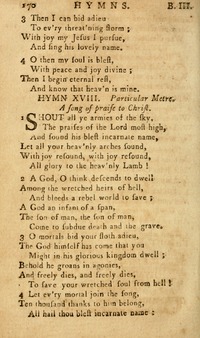 170 HYMNS. B. III.
3 Then I can bid adieu
To ev'ry threat'ning storm;
With joy my Jesus I pursue,
And sing his lovely name.
4 O then my soul is blest,
With peace and joy divine;
Then I begin eternal rest,
And know that heav'n is mine.
HYMN XVIII. Particular Metre.
A song of praise to Christ.
1 SHOUT all ye armies of the sky,
The praises of the Lord most high,
And sound his blest incarnate name,
Let all your heav'nly arches sound,
With joy resound, with joy resound,
All glory to the heav'nly Lamb!
2 A God, O think, descends to dwell
Among the wretched heirs of hell,
And bleeds a rebel world to save;
A God an infant of a span,
The son of man, the son of man,
Come to subdue death and the grave.
3 O mortals bid your sloth adieu,
The God himself has come that you
Might in his glorious kingdom dwell;
Behold he groans in agonies,
And freely dies, and freely dies,
To save your wretched soul from hell!
4 Let ev'ry mortal join the song,
Ten thousand thanks to him belong,
All hail thou blest incarnate name: